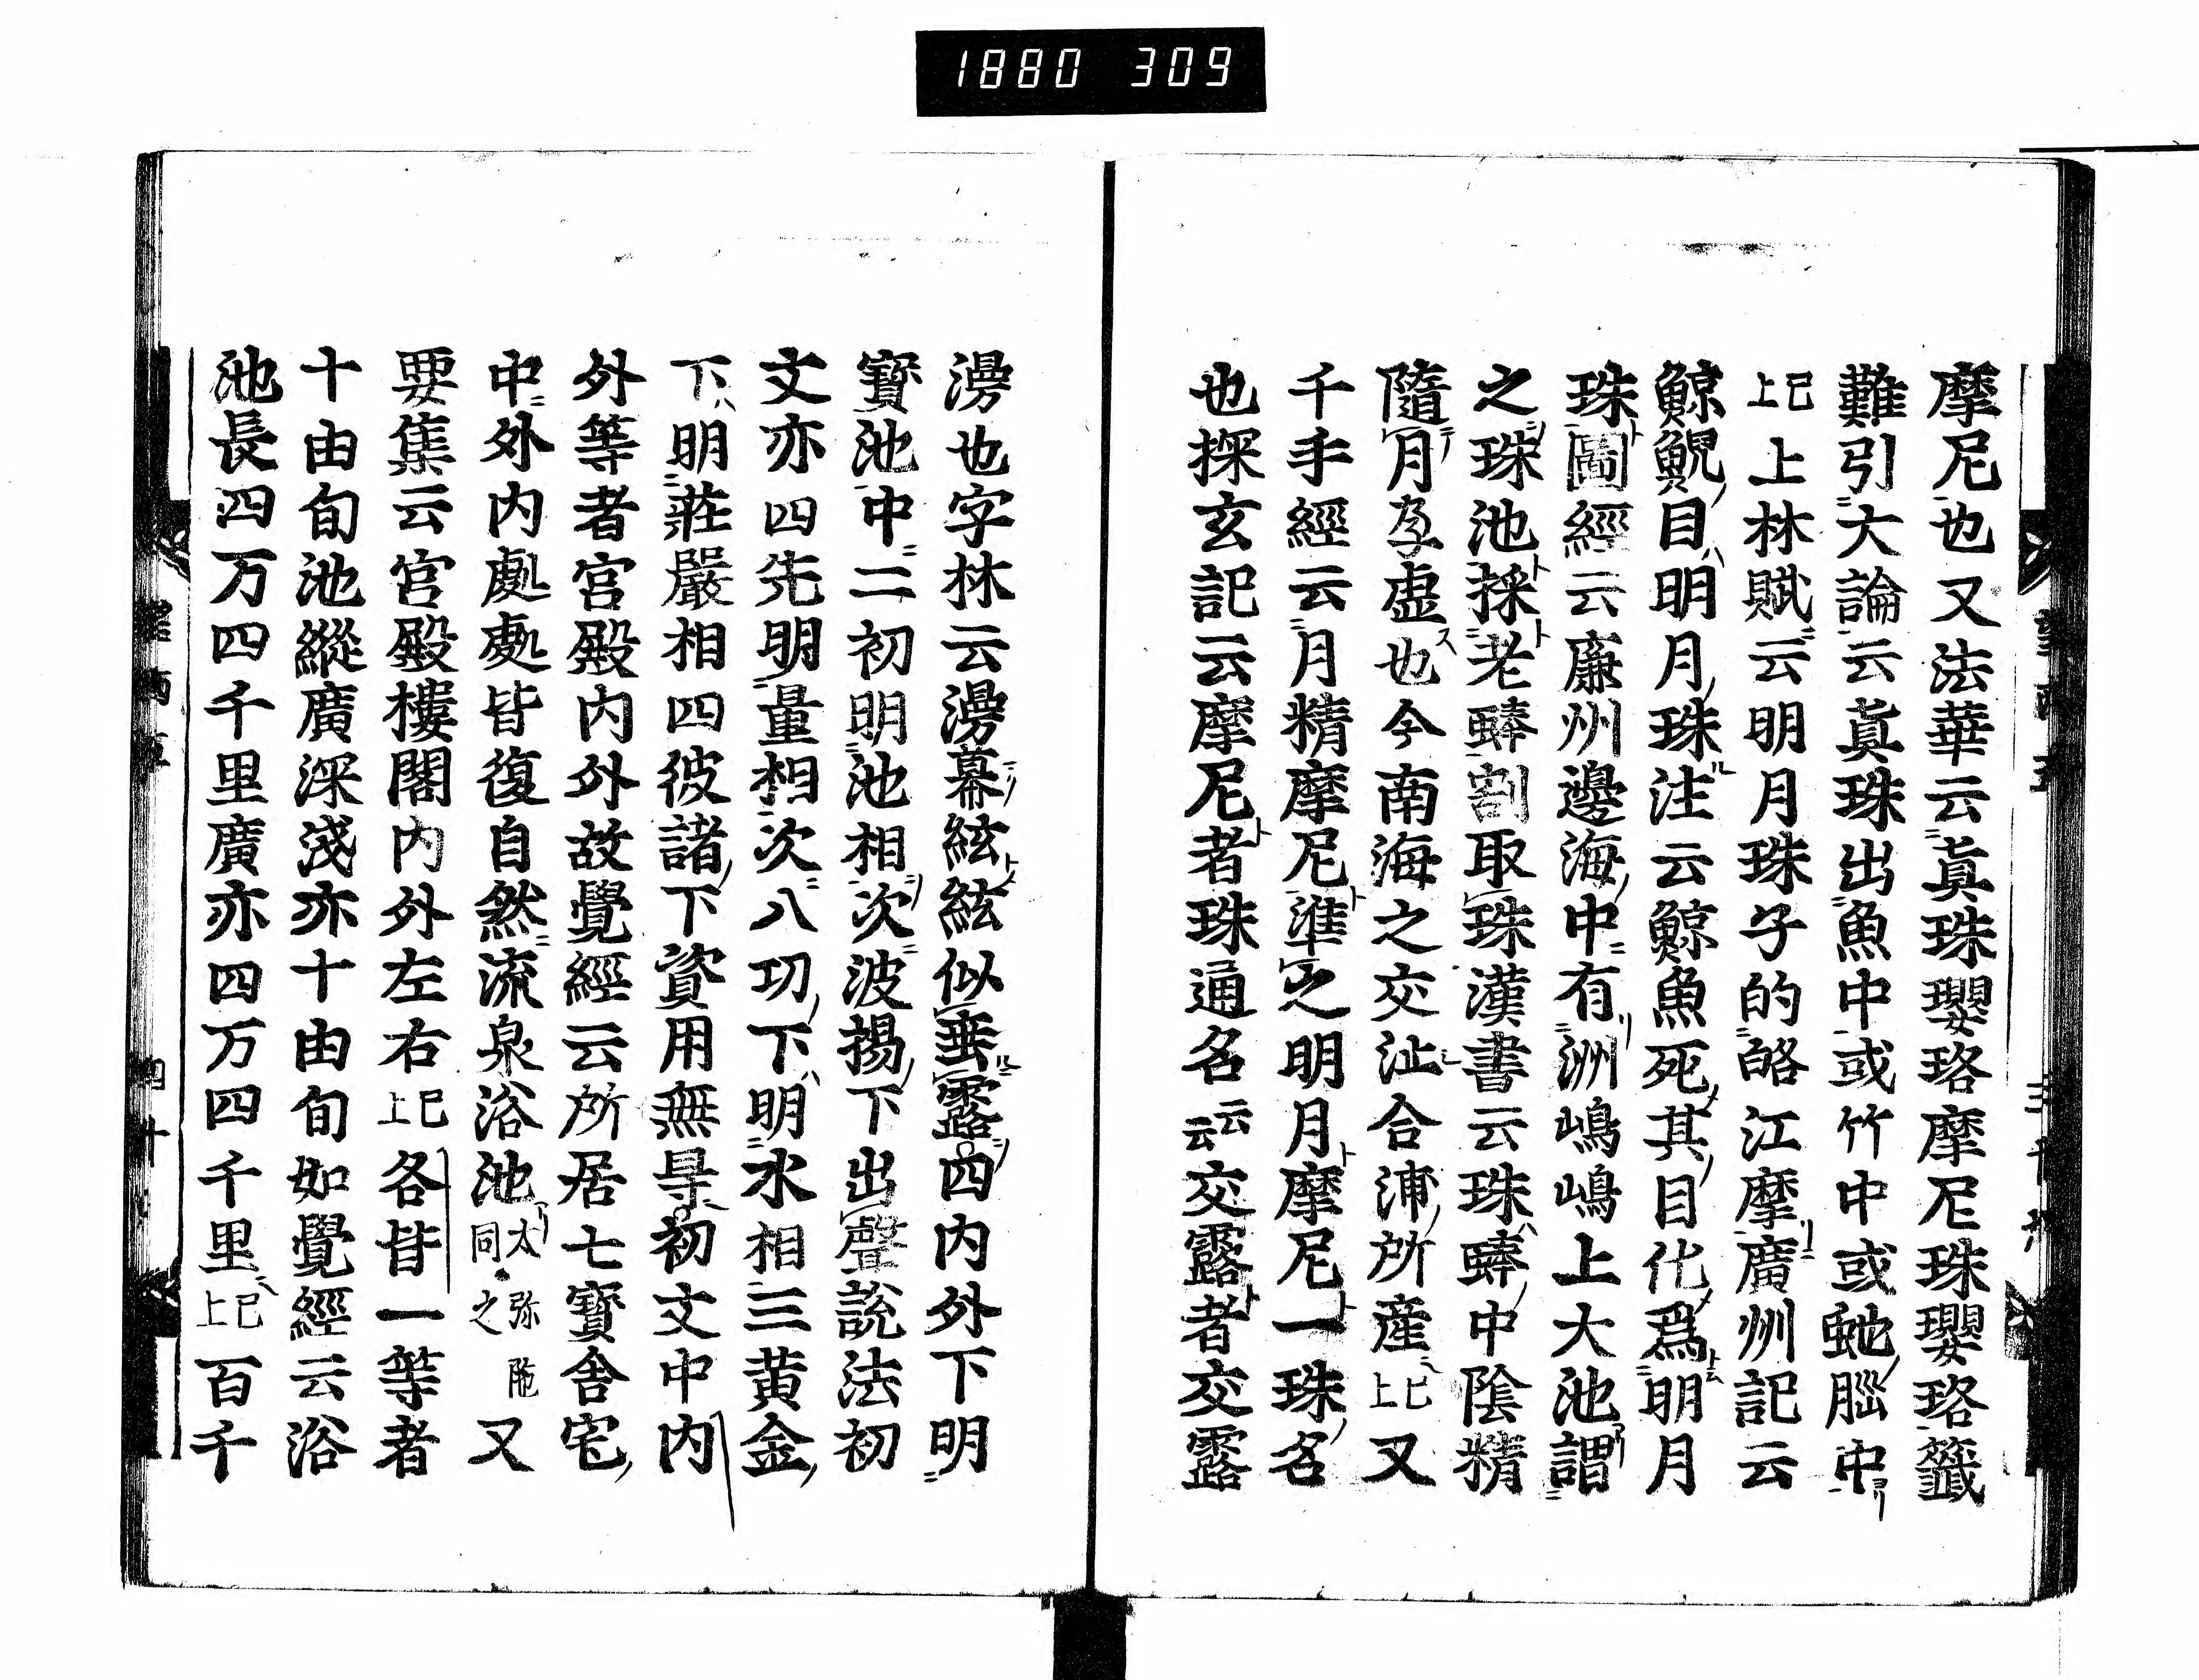 1880 309
摩尼也又法華云眞珠瓔珞摩尼珠瓔珞籤
難引大論云眞珠出魚中或竹中或虵腦中
已上上林賦云明月珠子的皪江摩廣州記云
鯨鯢目明月珠注云鯨魚死其目化爲明月
珠圖經云廉州邊海中有洲嶋嶋上大池謂
之珠池採老蚌割取珠漢書云珠蚌中陰精
隨月孕虛也今南海之交沚合浦所產已上又
千手經云月精摩尼準之明月摩尼一珠名
也探玄記云摩尼者珠通名云云交露者交露
漫也字林云漫幕絃絃似垂露四内外下明
寶池中二初明池相次波揚下出聲說法初
文亦四先明量相次八功下明水相三黄金
下明莊嚴相四彼諸下資用無㝵初文中内
外等者宮殿内外故覺經云所居七寶舍宅
中外内處處皆復自然流泉浴池太弥陁同之又
要集云宮殿樓閣内外左右已上各皆一等者
十由旬池縱廣深淺亦十由旬如覺經云浴
池長四万四千里廣亦四万四千里已上百千